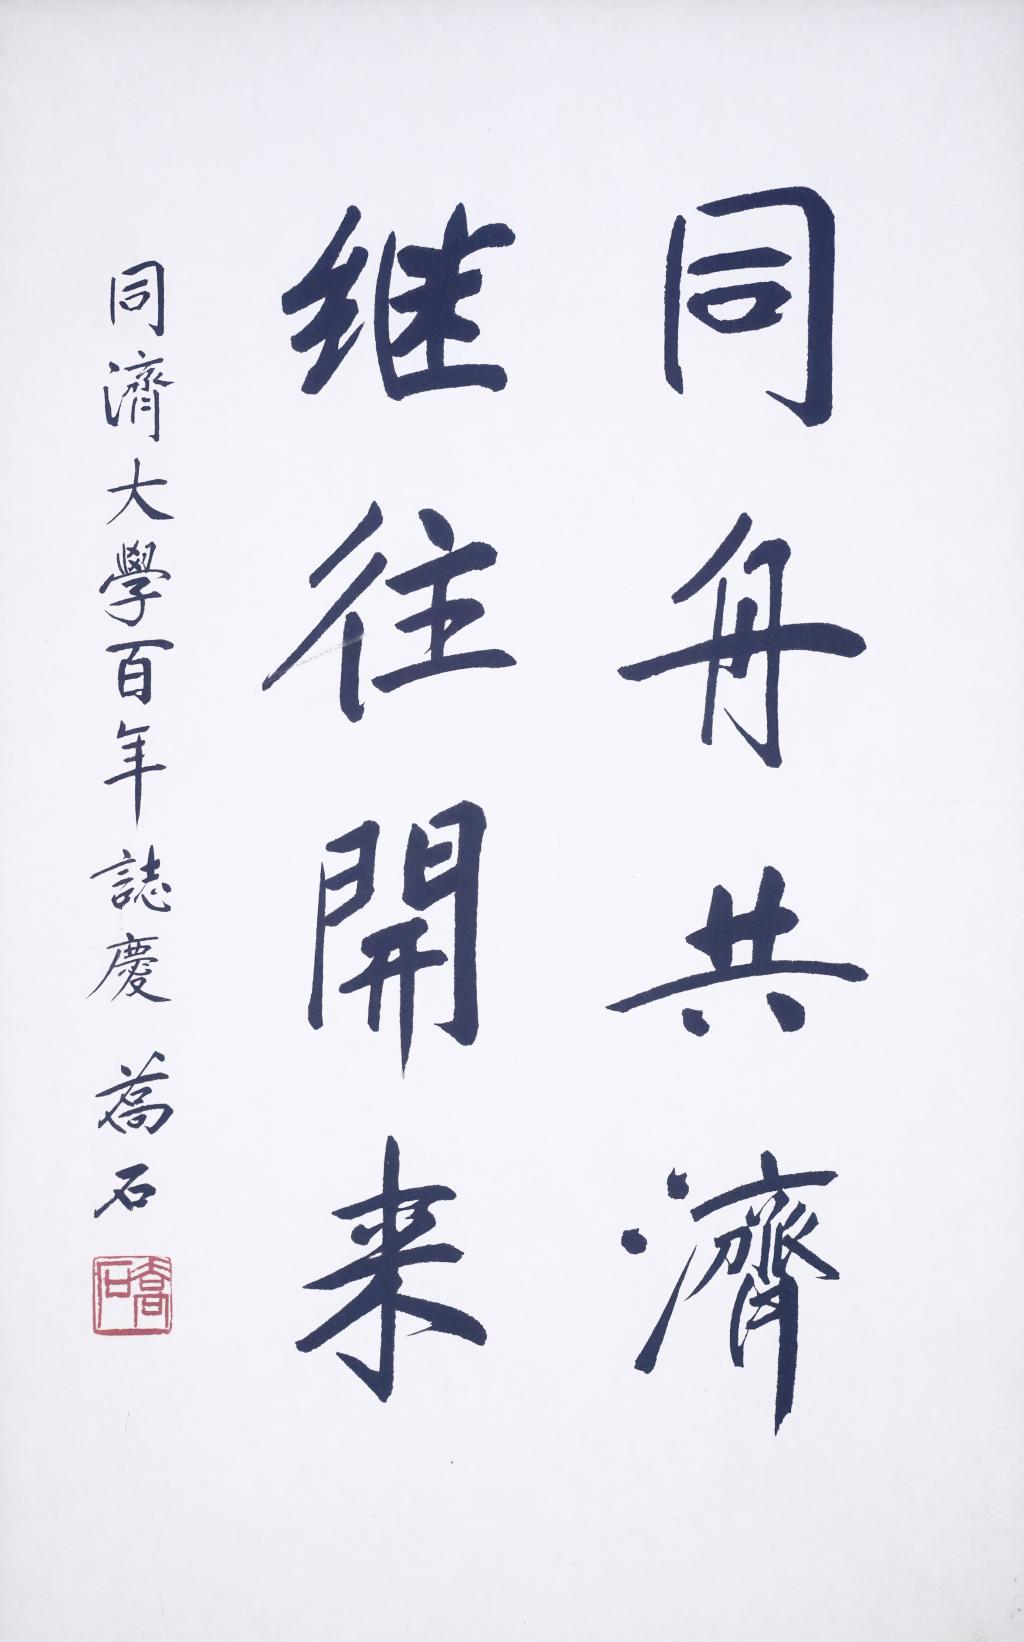 同舟共濟
继往開来
同濟大學百年誌慶 喬石
喬石